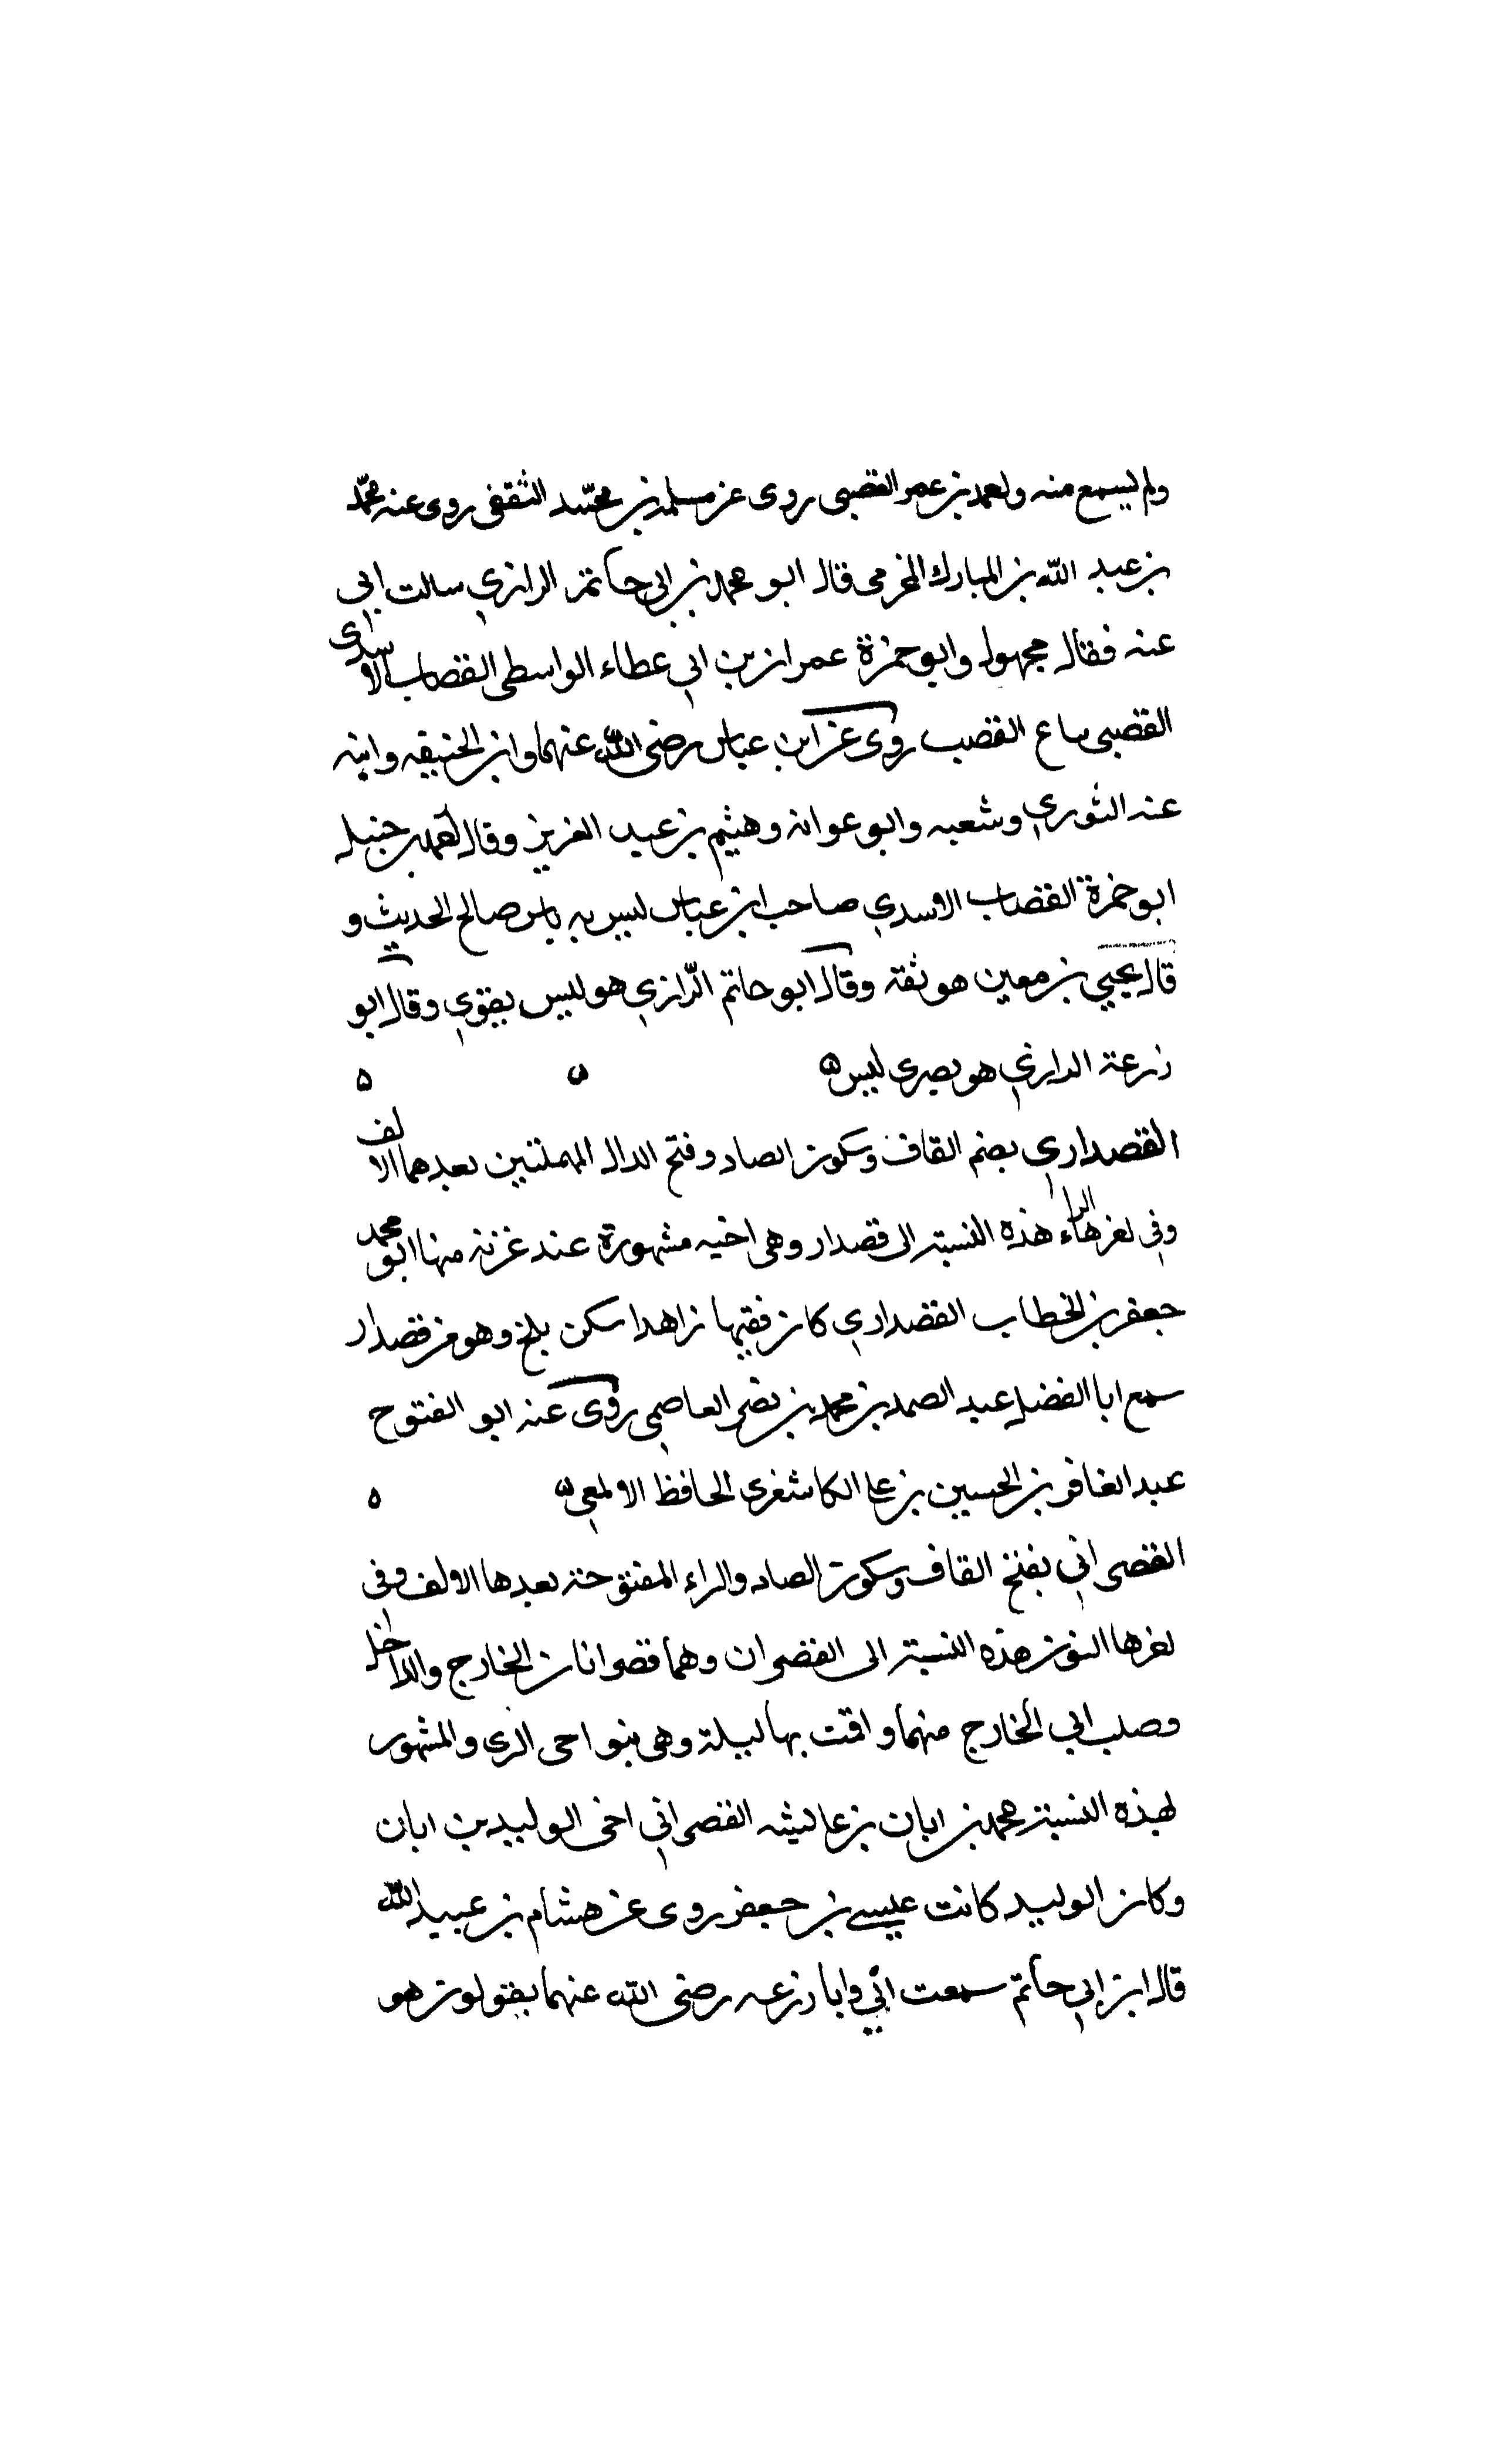 ولم يسمع منه ولعمد بن عمر القصبى روى عن مسلمة بن محمد الثقفى روى عنه محمد
بن عبد الله بن المبارك المخرمى قال ابو محمد بن ابى حاتم الرازي سالت ابى
عنه فقال مجهول وابو حمزة عمران بن ابى عطاء الواسطى القصاب الاسدى
القصبى بياع القصب روى عن ابن عباس رضى الله عنهما وابن الحنيفيه وابنه
عنه الثوري وشعبه وابو عوانه وهشيم بن عبد العزيز وقال احمد بن حنبل
ابو حمزة القصاب الاسدي صاحب ابن عباس ليس به باس صالح الحديث و
قال يحيى بن معين هو ثقة وقال ابو حاتم الرّازي هو ليس بقوي وقال ابو
زرعة الرازي هو بصرى ليس ه ه ه
القصدارى بضم القاف وسكون الصاد وفتح الدال المهملتين بعدهما الالف
وفى اخرها الراء هذه النسبة الى قصدار وهى اخيه مشهورة عند غزنة منها ابو محمد
جعفر بن الخطاب القصداري كان فقيها زاهدا سكن بلخ وهو من قصدار
سمع ابا الفضل عبد الصمد بن محمد بن نصر العاصمى روى عنه ابو الفتوح
عبد الغافر بن الحسين بن على الكاشغرى الحافظ الالمعى ه ه
القصرانى بفتح القاف وسكون الصاد والراء المفتوحة بعدها الالف وفى
اخرها النون هذه النسبة الى القصران وهما قصرانان الخارج والداخل
وصلب ابى الخارج منهما واقمت بها ليلة وهى بنواحى الرى والمشهور
بهذه النسبة محمد بن ابان بن عائشه القصرانى اخى الوليد بن ابان
وكان الوليد كاتب عيسى بن جعفر روى عن هشام بن عبيد الله
قال ابن ابى حاتم سمعت ابي وابا زرعه رضى الله عنهما يقولون هو